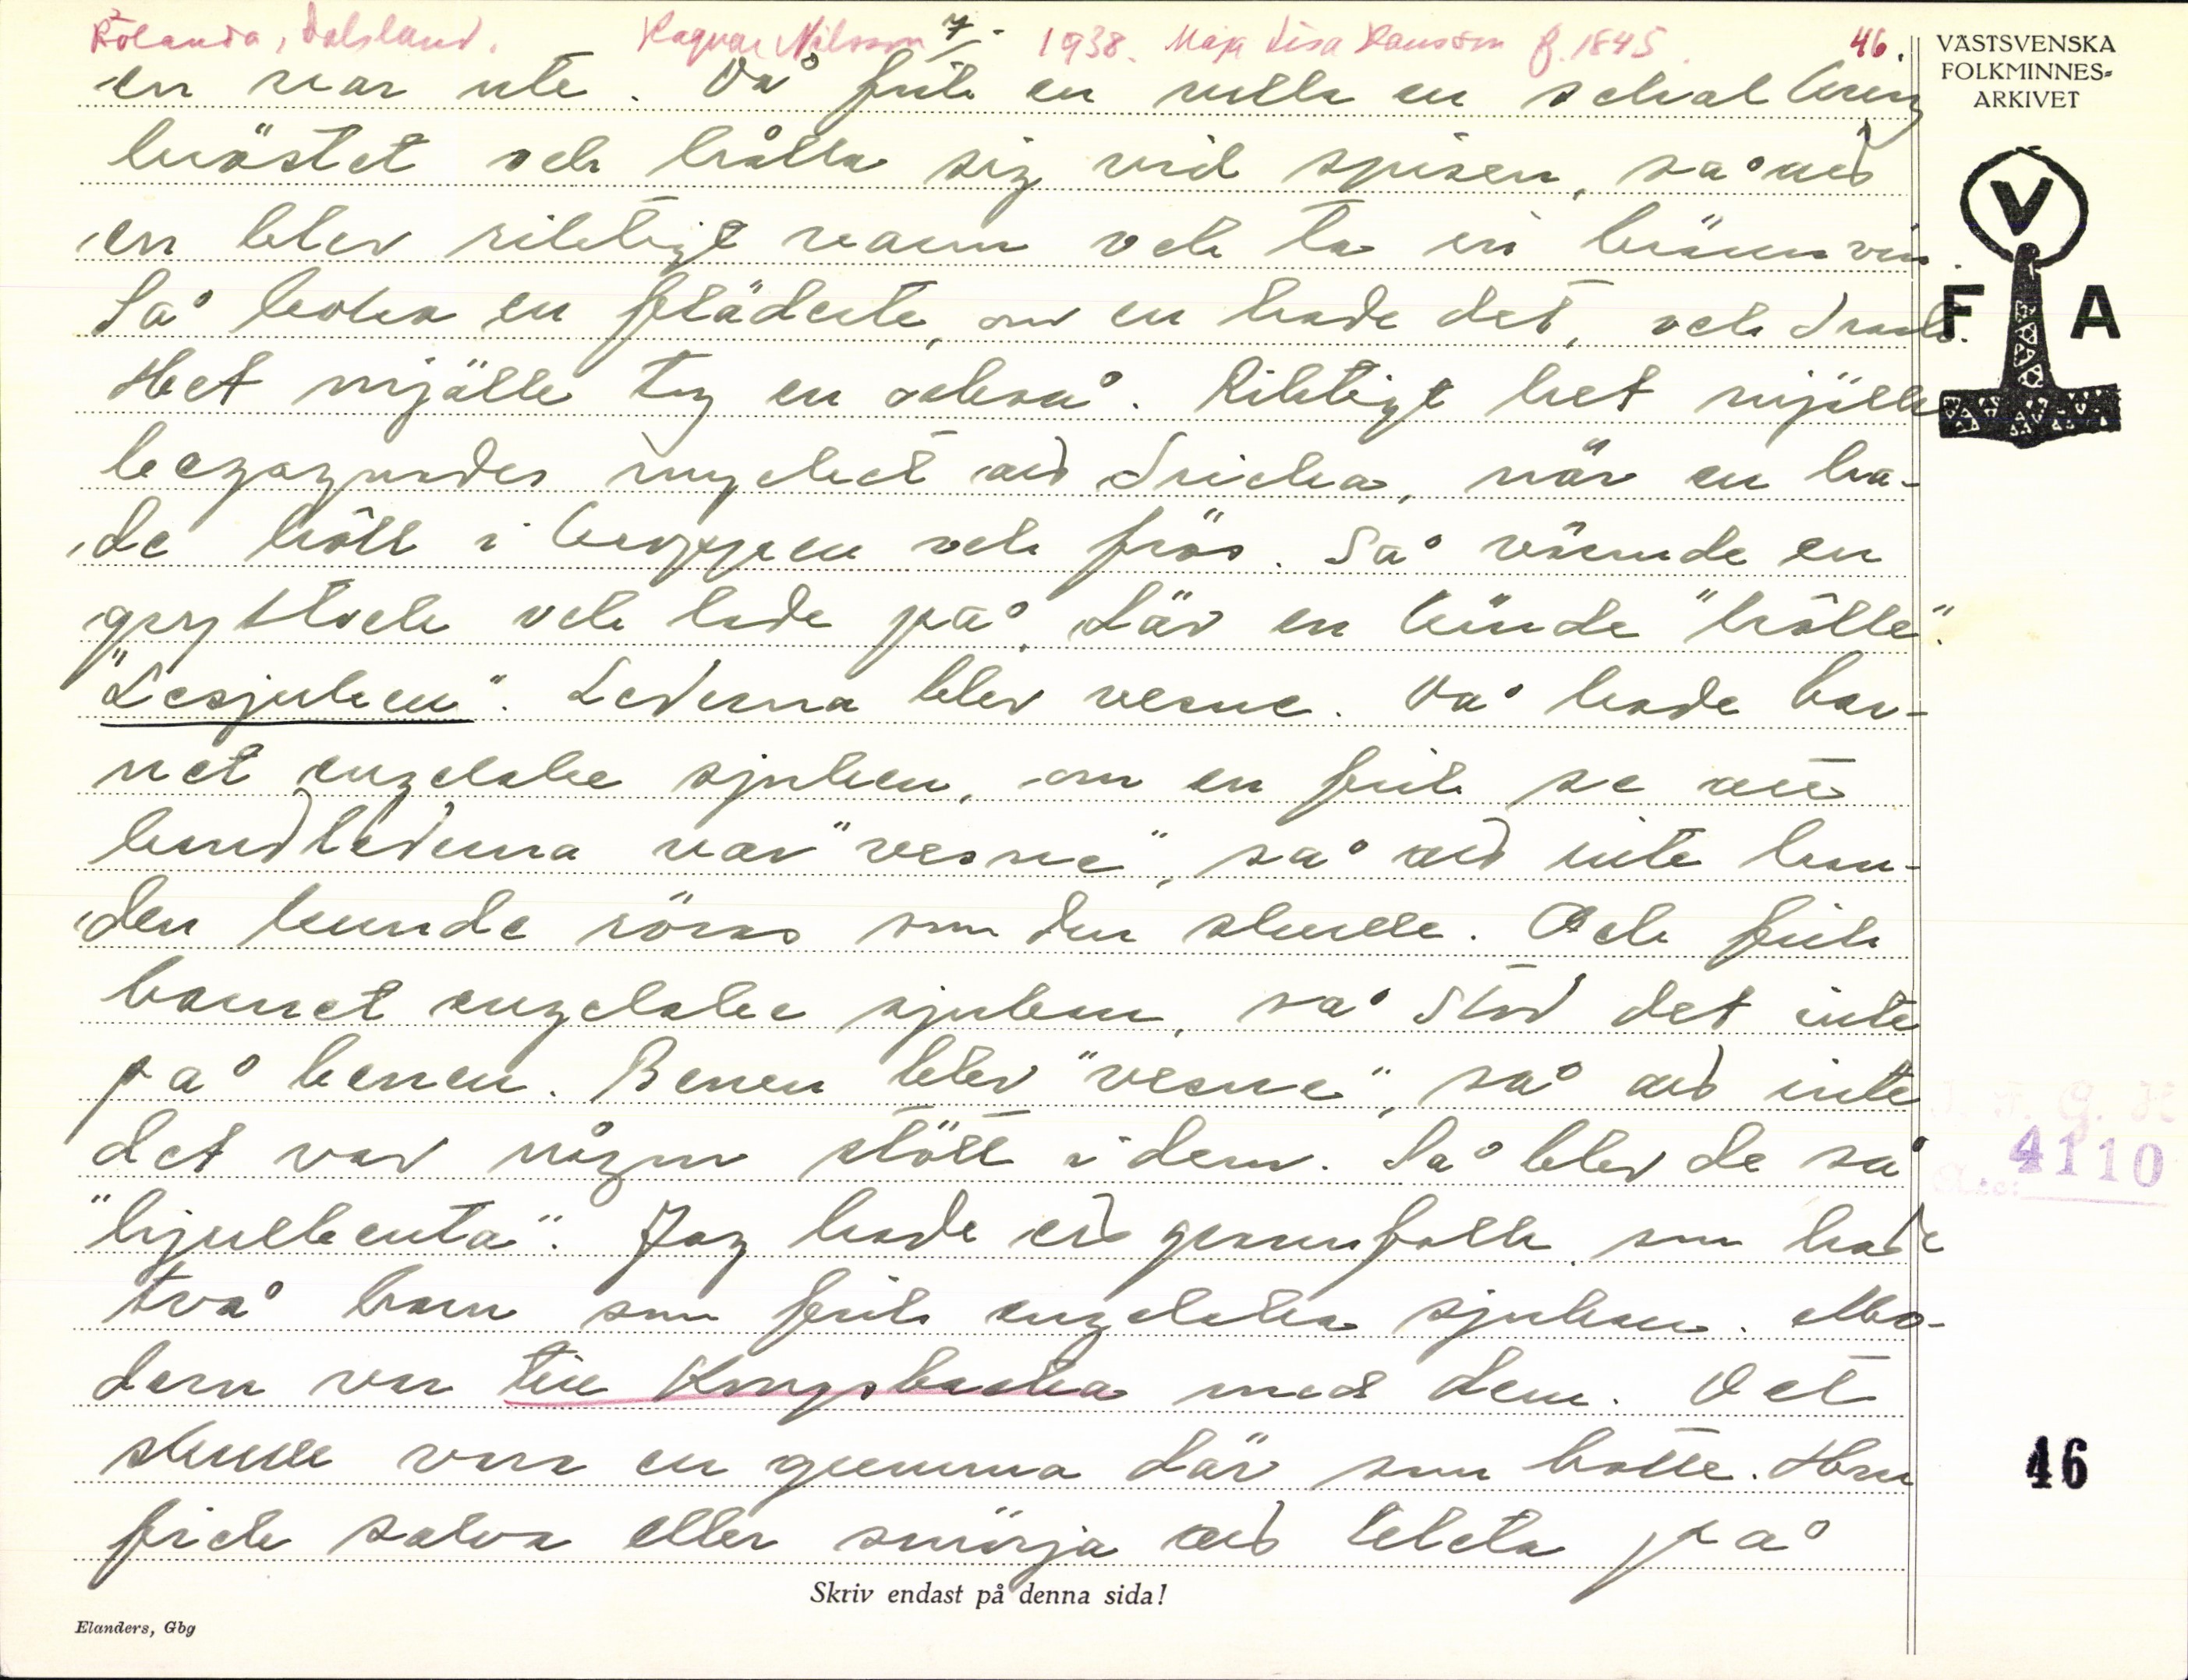 Rölanda, Dalsland. Ragnar Nilsson 7/. 1938. Maja Lisa Hansson f. 1845. 46.
en var ute. Då fick en rulla en schal kring
bröstet och hålla sig vid spisen, så att
en blev riktigt varm och ta in brännvin.
Så koka en flädertе, om en hade det, och drack.
Het mjölk tog en också. Riktigt het mjölk
begagnades mycket att dricka, när en ha-
de håll i kroppen och frös. Så värmde en
grytlock och lade på, där en kände "hålle".
"Lesjuken". Lederna blev vesne. Då hade bar-
net engelske sjuken, om en fick se att
handlederna var "vesne", så att inte han-
den kunde röras som den skulle. Och fick
barnet engelske sjukan, så stod det inte
på benen. Benen blev "vesne", så att inte
det var någon stöll i dem. Så blev de så
"hjulbenta". Jag hade ett grannfolk som hade
två barn som fick engelska sjukan. Mo-
dern var till Kongsbacka med dem. Det
skulle vara en gumma där som botte. Hon
fick salva eller smörja att kleta på
Skriv endast på denna sida!
Elanders, Gbg
VÄSTSVENSKA
FOLKMINNES-
ARKIVET
V
F A
4110
46